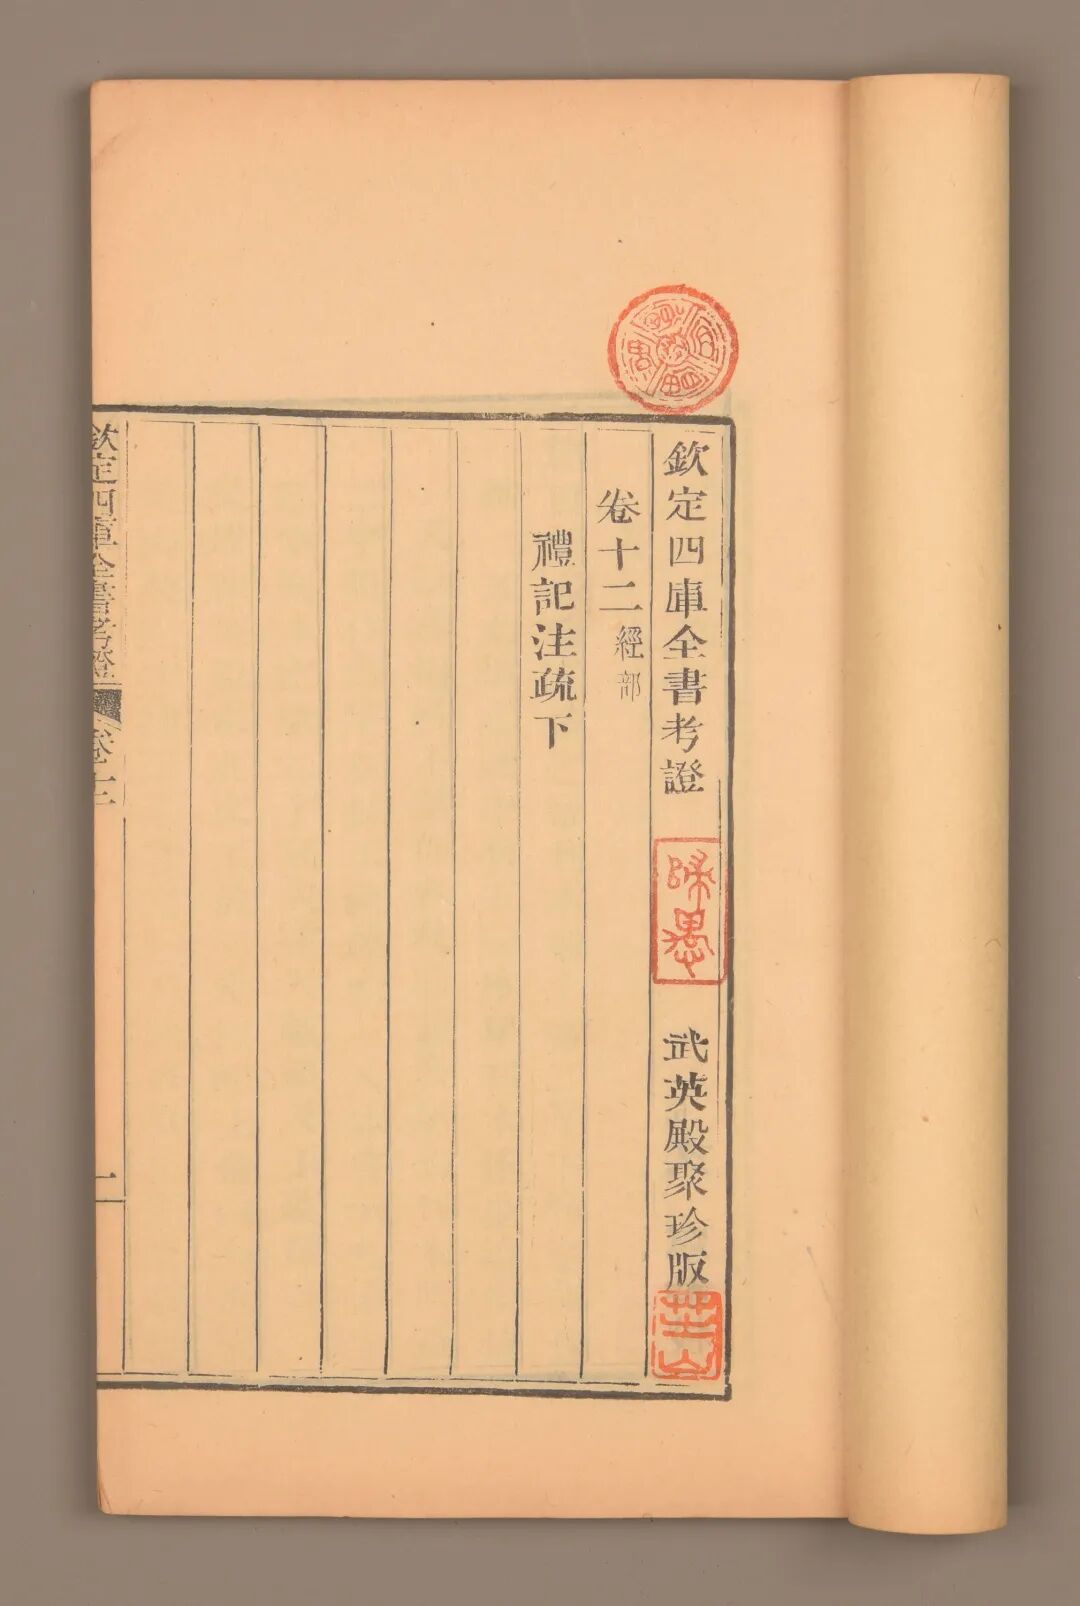 欽定四庫全書考證
武英殿聚珍版
卷十二經部
禮記注疏下
欽定四庫全書考證
卷十二
一